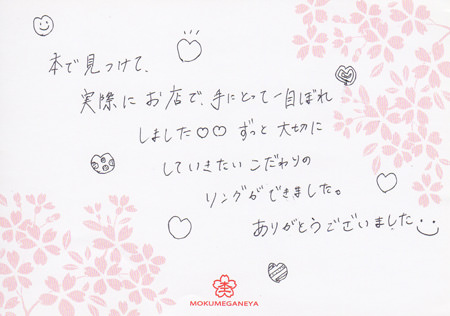 本で見つけて、
実際に お店で、手にとって一目ぼれ
しました♡♡ ずっと 大切に
していきたい こだわりの
リングが できました。
ありがとうございました
杢
MOKUMEGANEYA